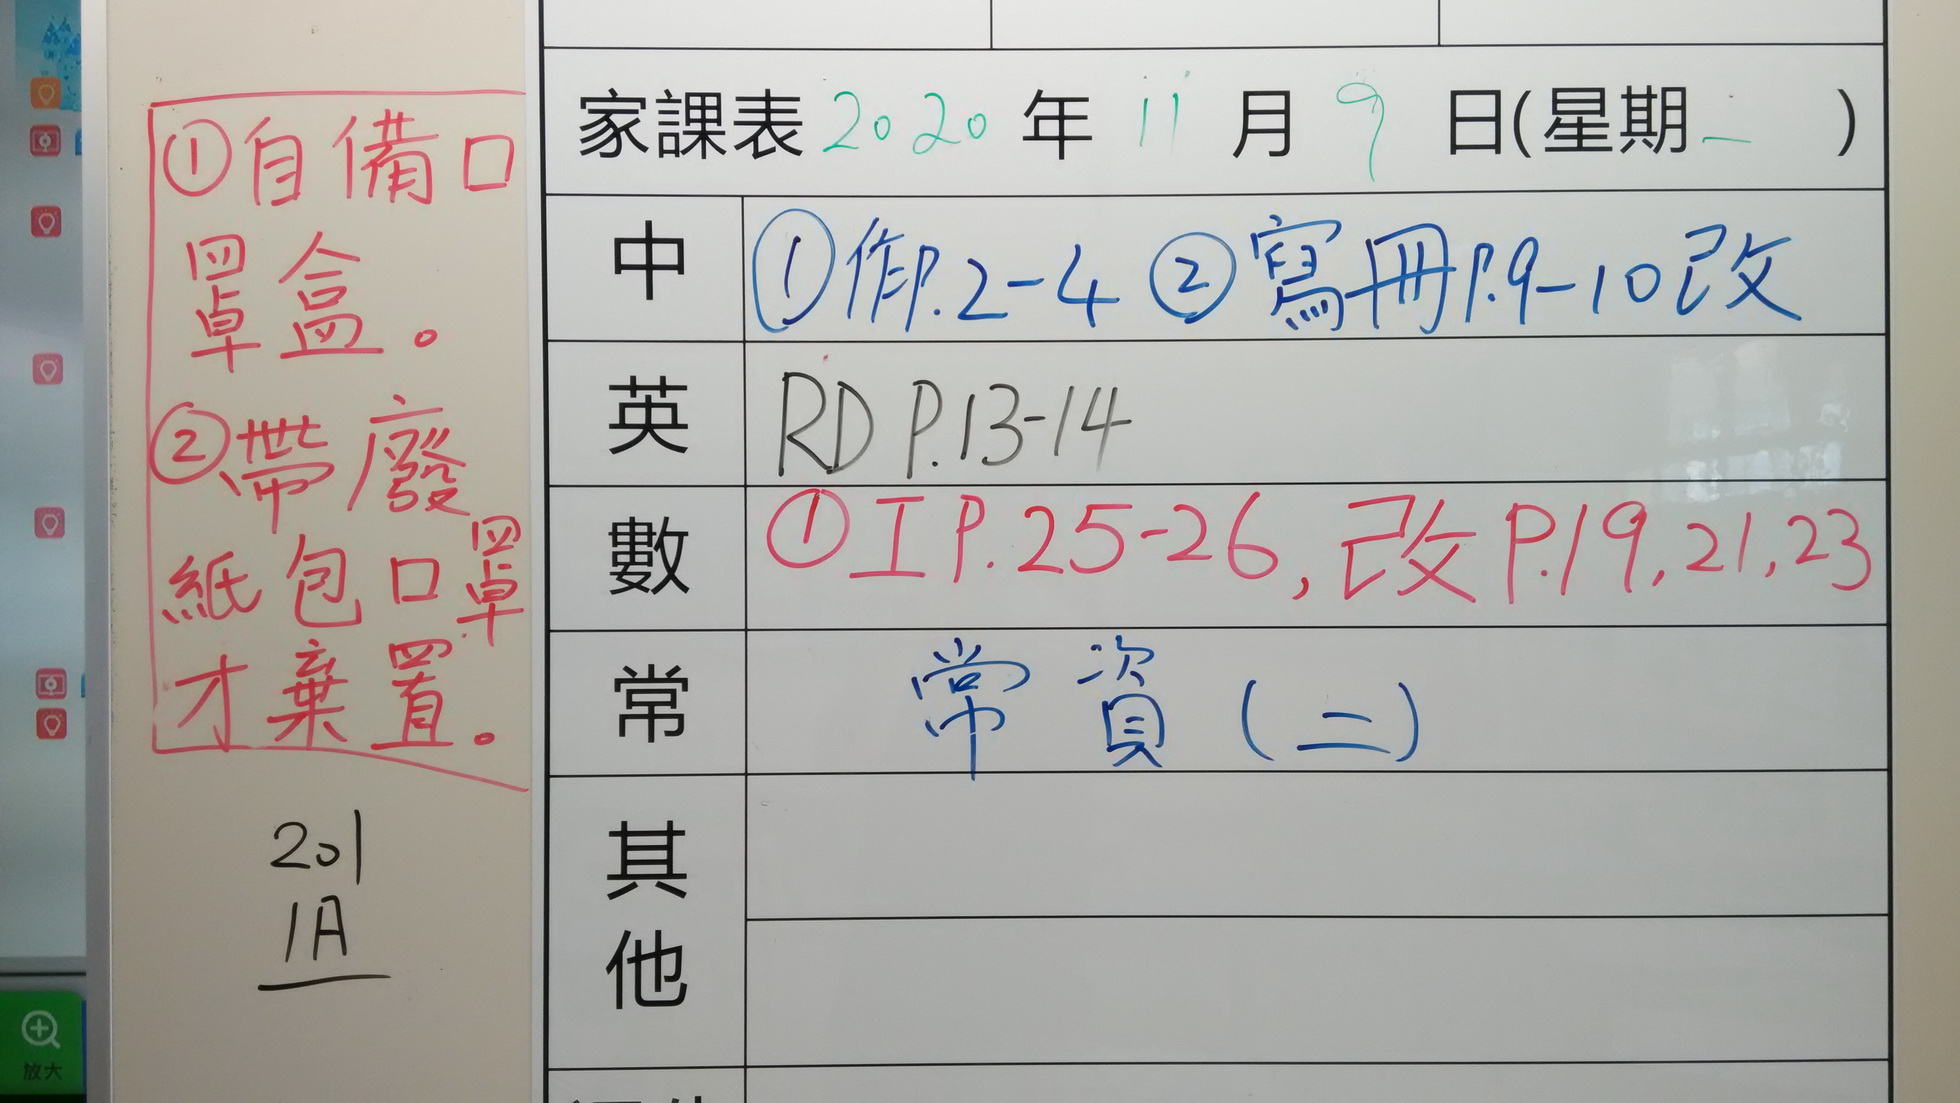 ①自備口
罩盒。
②帶廢
紙包口罩
才棄置。
201
1A
放大
家課表 2020 年 11 月 9 日(星期一 )
中 ①作P.2-4 ②寫冊P.9-10改
英 RD P.13-14
數 ①工P.25-26, 改P.19, 21, 23
常 常資(二)
其
他